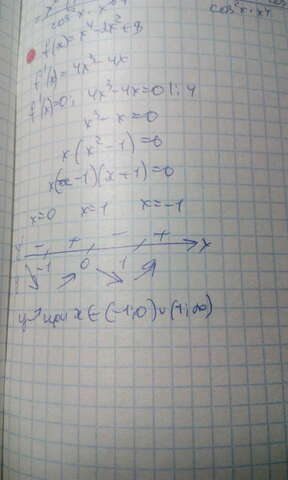 f(x)=x⁴-2x²+8
f'(x)=4x³-4x
f'(x)=0; 4x³-4x=0 |:4
x³-x=0
x(x²-1)=0
x(x-1)(x+1)=0
x=0 x=1 x=-1
- + - + x
-1 0 1
↘ ↗ ↘ ↗
y↗ при x∈(-1;0)∪(1;∞)